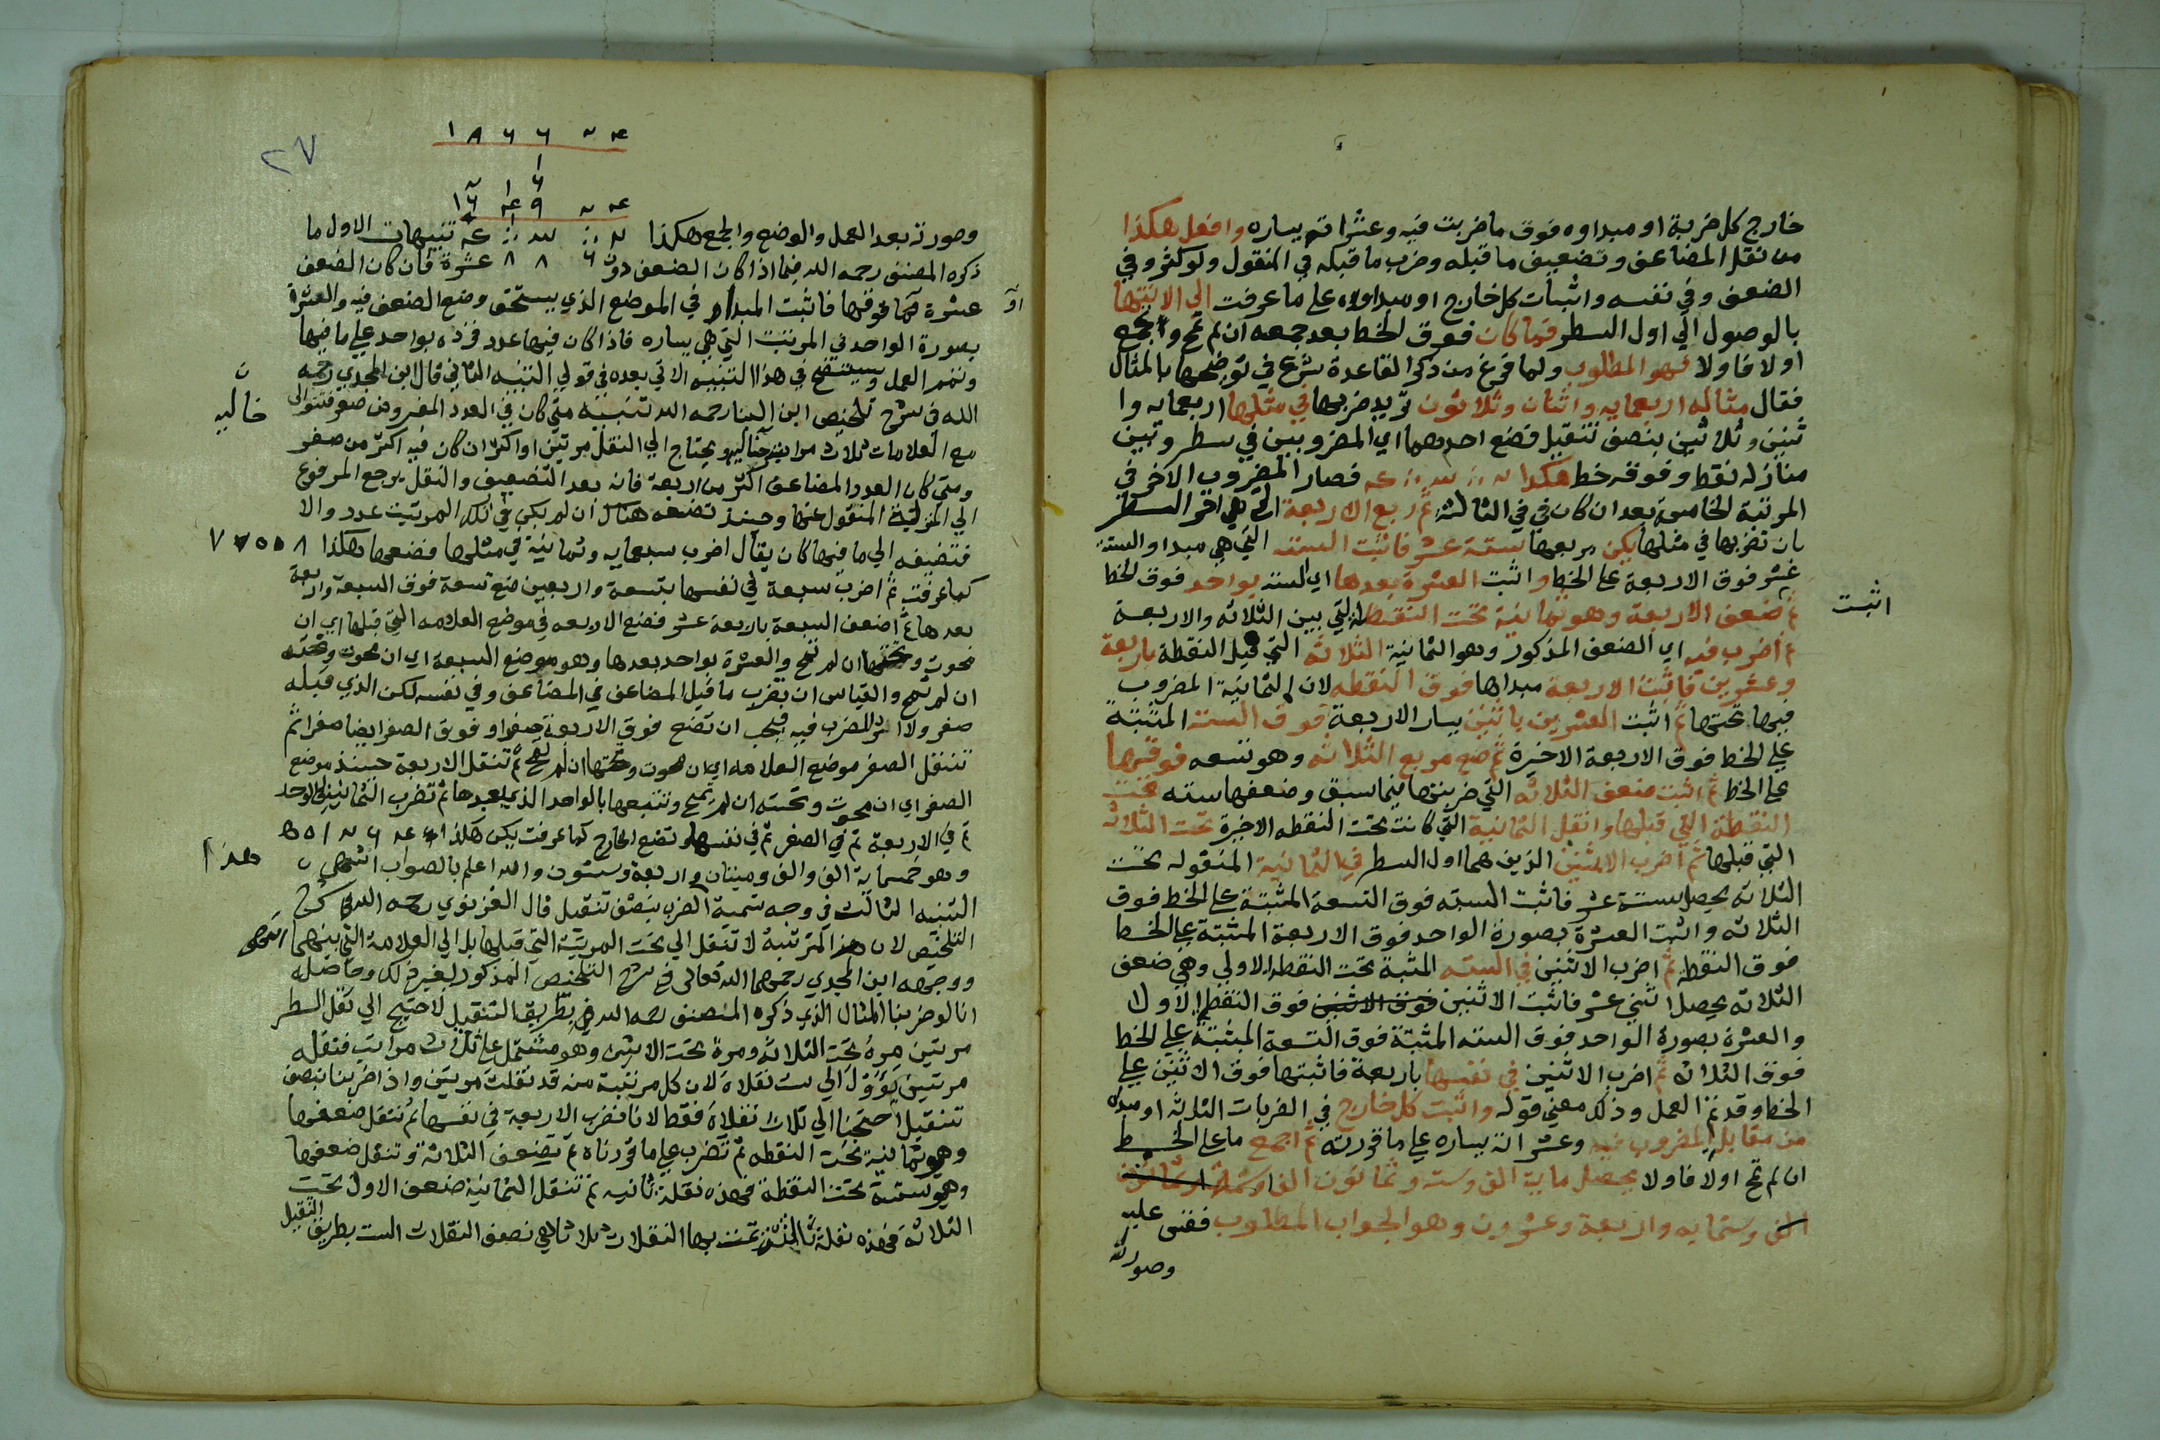 خارج كل ضربة او مبداوه فوق ما ضربت فيه وعشراته يساره وافعل هكذا
من نقل المضاعف وتضعيف ما قبله وضرب ما قبله في المنقول ولو كثر وفي
الضعف وفي نفسه واثبات كل خارج او مبداوه على ما عرفت الي الانتها
بالوصول الي اول السطر فما كان فوق الخط بعد جمعه ان لم تمح وتجمع
اولا فاولا فهو المطلوب ولما فرغ من ذكر القاعدة شرع في توضيحها بالمثال
فقال مثاله اربعمايه واثنان وثلاثون تريد ضربها في مثلها اربعمايه وا
ثنين وثلاثين بنصف تنقيل فضع احدهما اي المضروبين في سطر وبين
منازله نقط وفوقه خط هكذا فصار المضروب الاخر في
المرتبة الخامسة بعد ان كان في الثالثة ثم ربع الاربعة التي هي اخر السطر
بان تضربها في مثلها يكن مربعها ستة عشر فاثبت الستة التي هي مبدا والستة
عشر فوق الاربعة على الخط واثبت العشرة بعدها اي الستة بواحد فوق الخط
اثبت
ثم ضعف الاربعة وهو ثمانية تحت النقطة التي بين الثلاثة والاربعة
ثم اضرب فيه اي الضعف المذكور وهو الثمانية الثلاثة التي قبل النقطة باربعة
وعشرين فاثبت الاربعة مبداها فوق النقطه لان الثمانية المضروب
فيها تحتها ثم اثبت العشرين باثنين يسار الاربعة فوق الستة المثبتة
على الخط فوق الاربعة الاخيرة ثم ضع مربع الثلاثة وهو تسعه فوقها
على الخط ثم اثبت ضعف الثلاثة التي ضربتها فيما سبق وضعفها سته تحت
النقطة التي قبلها وانقل الثمانية التي كانت تحت النقطه الاخيرة تحت الثلاثة
التي قبلها ثم اضرب الاثنين الذين هما اول السطر في الثمانية المنقوله تحت
الثلاثة يحصل ستة عشر فاثبت السته فوق التسعة المثبتة على الخط فوق
الثلاثة واثبت العشرة بصورة الواحد فوق الاربعة المثبتة على الخط
فوق النقطة ثم اضرب الاثنين في السته المثبة تحت النقطه الاولي وهي ضعف
الثلاثة يحصل اثني عشر فاثبت الاثنين فوق الاثنين فوق النقطة الاولا
والعشرة بصورة الواحد فوق السته المثبتة فوق التسعة المثبتة على الخط
فوق الثلاثة ثم اضرب الاثنين في نفسها باربعة فاثبتها فوق الاثنين على
الخط وقد تم العمل وذلك معني قوله واثبت كل خارج في الضربات الثلاثة او مبداه
من مقابل المضروب فيه وعشراته يساره على ما قررته ثم اجمع ما على الخط
ان لم تمح اولا فاولا يحصل ماية الف وستة وثمانون الفا
الف وستمايه واربعة وعشرون وهو الجواب المطلوب فقس عليه
وصورته
٢٧
١ ٨ ٦ ٦
وصورته بعد العمل والوضع والجمع هكذا تنبيهات الاول ما
ذكره المصنف رحمه الله فيما اذا كان الضعف دون ٦ ٨ ٨ عشرة فان كان الضعف
عشرة فما فوقها فاثبت المبدا في الموضع الذي يستحق وضع الضعف فيه والعشرة
بصورة الواحد في المرتبة التي هي يساره فاذا كان فيها عدد فزده بواحد على ما فيها
وتتم العمل وسيتضح في هذا التنبيه الاتي بعده في قولي التنبيه الثاني قال ابن المجدي رحمه
الله في شرح تلخيص ابن البنا رحمه الله تنبيه متي كان في العدد المفروض صفر فتتوالى
خاليه
مع العلامات ثلاث مراتب خاليه ويحتاج الي النقل مرتين او اكثر ان كان فيه اكثر من صفر
ومتي كان العدد المضاعف اكثر من اربعة فانه بعد التضعيف والنقل يرجع المرفوع
الي المرتبة المنقول عنها وحينئذ تضعه هناك ان لم يكن في تلك المرتبة عدد والا
فتضيفه الي ما فيها كان يقال اضرب سبعمايه وثمانية في مثلها فضعها هكذا ٨ ٥ ٥ ٧ ٧
كما عرفت ثم اضرب سبعة في نفسها بتسعة واربعين ضع تسعة فوق السبعة واربعة
بعدها ثم اضعف السبعة باربعة عشر فضع الاربعه في موضع العلامه التي قبلها اي ان
محوت وتحتها ان لم تمح والعشرة بواحد بعدها وهو موضع السبعة اي ان محوت وتحته
ان لم تمح والقياس ان يضرب ما قبل المضاعف في المضاعف وفي نفسه لكن الذي قبله
صفر ولا اثر للضرب فيه فيجب ان تضع فوق الاربعة صفرا وفوق الصفر ايضا صفرا ثم
تنتقل الصفر موضع العلامه اي ان محوت وتحتها ان لم تمح ثم تنقل الاربعة حينئذ موضع
الصفر اي ان محوت وتحته ان لم تمح وتتبعها بالواحد الذي بعدها ثم تضرب الثمانية في الواحد
ثم في الاربعة ثم في الصفر ثم في نفسها وتضع الخارج كما عرفت يكن هكذا
وهو خمسماية الف والف ومئتان واربعة وستون والله اعلم بالصواب انتهى
التنبيه الثالث في وجه تسمية الضرب بنصف تنقيل قال الغزنوي رحمه الله في شرح
التلخيص لان هذا المرتبة لا تنقل الي تحت المرتبة التي قبلها بل الي العلامة التي بينهما انتهى
ووجهه ابن المجدي رحمهما الله تعالى في شرح التلخيص المذكور بغير ذلك وحاصله
انا لو ضربنا المثال الذي ذكره المصنف رحمه الله بطريق التنقيل لاحتيج الي نقل السطر
مرتين مرة تحت الثلاثة ومرة تحت الاثنين وهو مشتمل على ثلاث مراتب فنقله
مرتين يؤول الي ست نقلات لان كل مرتبة منه قد نقلت مرتين واذا ضربنا بنصف
تنقيل احتجنا الي ثلاث نقلات فقط لانا نضرب الاربعة في نفسها ثم ننقل ضعفها
وهو ثمانية تحت النقطه ثم نضرب على ما قررناه ثم نضعف الثلاثة وننقل ضعفها
وهو ستة تحت النقطة فهذه نقلة ثانيه ثم ننقل الثمانية ضعف الاول تحت
الثلاثة فهذه نقلة ثالثة تمت بها النقلات ثلاثا وهي نصف النقلات الست بطريق التنقيل